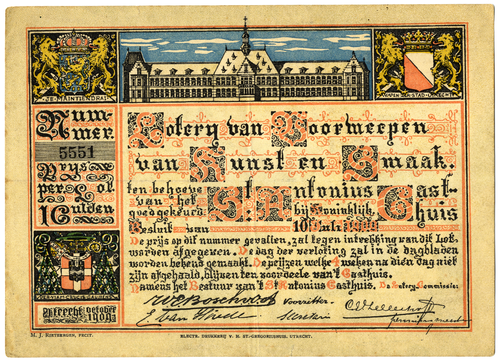 JE MAINTIENDRAI
Num-
mer.
5551
Prys
per Lot
1 Gulden
Lotery van Voorwerpen
van Kunst en Smaak.
ten behoeve
van het
goedgekeurd
St Antonius Gast-
huis
bij Koninklijk
Besluit van
De prijs op dit nummer gevallen, zal tegen intrekking van dit Lot
worden afgegeven. De dag der verloting zal in de dagbladen
worden bekend gemaakt. De prijzen welke, na dien dag niet
zijn afgehaald, blijven ten voordeele van 't Gasthuis.
Namens het Bestuur van 't St Antonius Gasthuis. De Lotery Commissie:
Voorzitter.
Utrecht october
1909
M. J. RIETBERGEN, FECIT.
ELECTR. DRUKKERIJ V. H. ST.-GREGORIUSHUIS, UTRECHT.